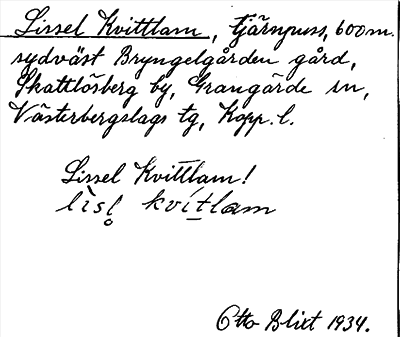 Lissel Kvittlam, tjärnpuss, 600 m.
sydväst Bryngelgården gård,
Skattlösberg by, Grangärde sn,
Västerbergslags tg, Kopp. l.
Lissel Kvittlam!
lìsl̥ kvítlam
Otto Blixt 1934.